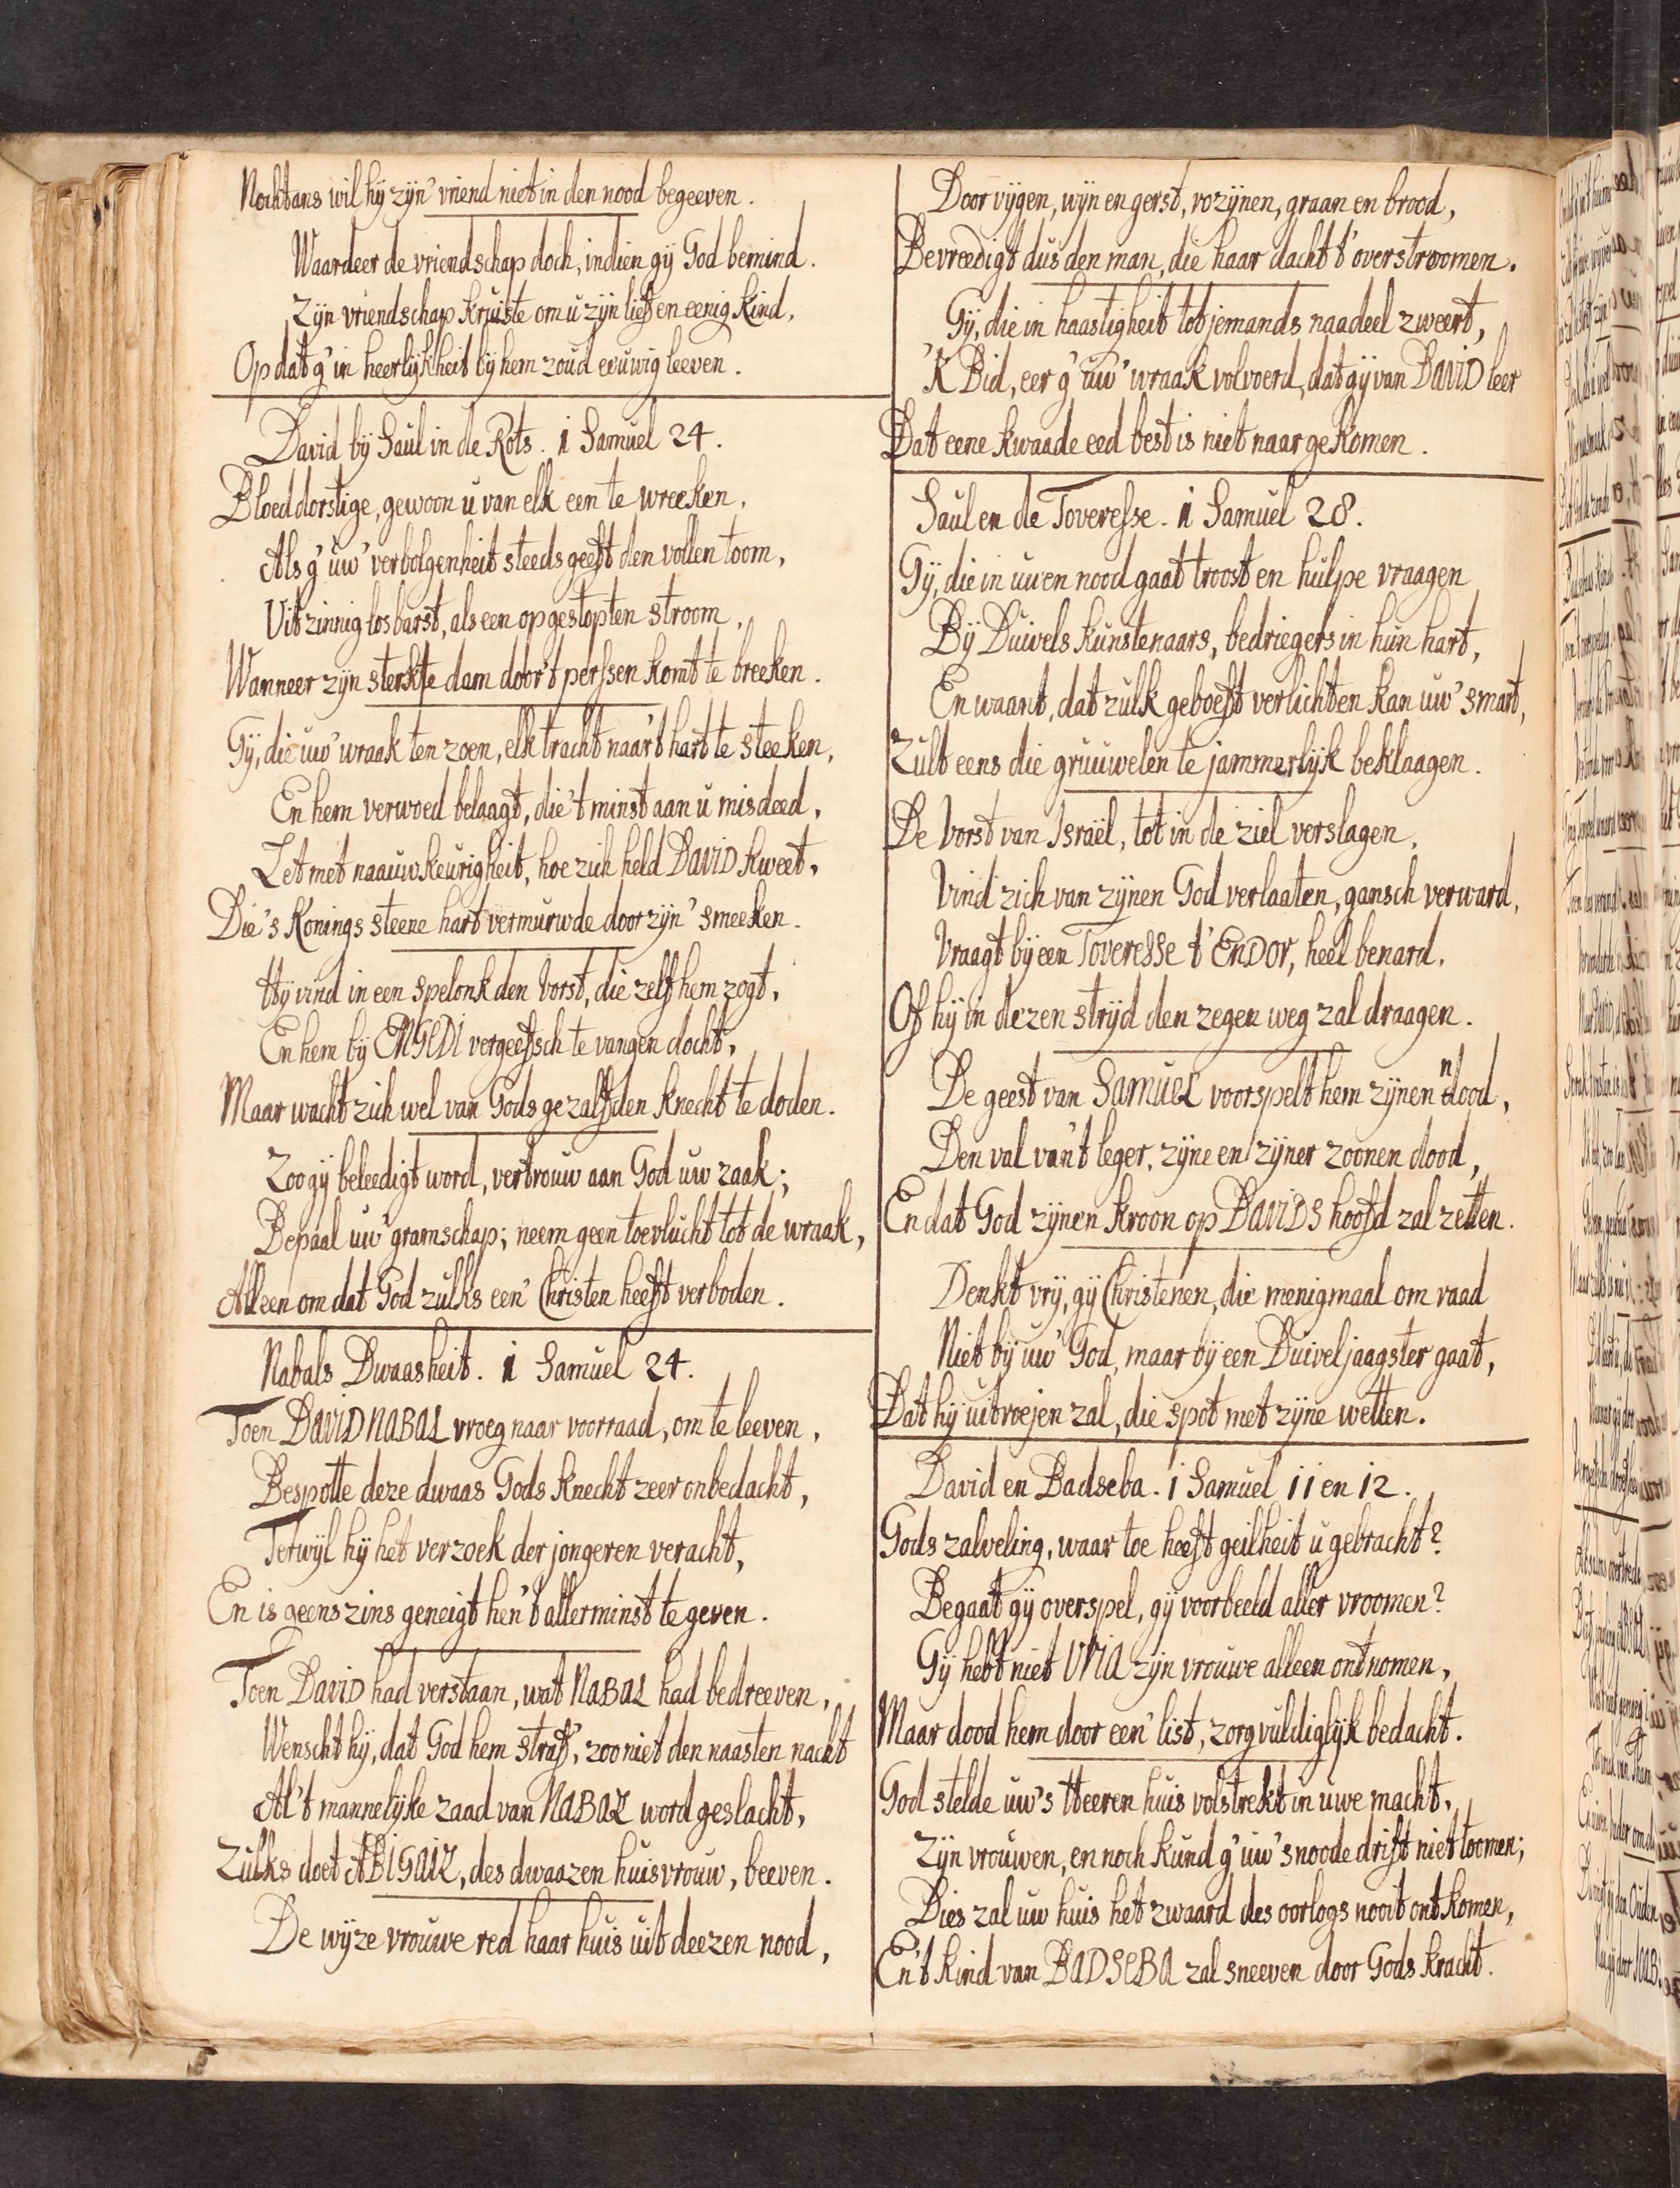 Nochtans wil hy zyn' vriend niet in den nood begeeven.
Waardeer de vriendschap doch, indien gy God bemind.
Zyn vriendschap kruiste om u zyn lief en eenig kind,
Op dat g' in heerlykheit by hem zoud eeuwig leeven.
David by Saul in de Rots. 1 Samuel 24.
Bloeddorstige, gewoon u van elk een te wreeken,
Als g' uw' verbolgenheit steeds geeft den vollen toom,
Uitzinnig losbarst, als een opgestopten stroom,
Wanneer zyn sterkste dam door 't perssen komt te breeken.
Gy, die uw' wraak ten zoen, elk tracht naar 't hart te steeken,
En hem verwoed belaagt, die 't minst aan u misdeed,
Let met naauwkeurigheit, hoe zich held DAVID kweet,
Die 's Konings steene hart vermurwde door zyn' smeeken.
Hy vind in een spelonk den Vorst, die zelf hem zogt,
En hem by ENGEDI vergeefsch te vangen docht,
Maar wacht zich wel van Gods gezalfden knecht te doden.
Zoo gy beleedigt word, vertrouw aan God uw zaak;
Bepaal uw' gramschap; neem geen toevlucht tot de wraak,
Alleen om dat God zulks een' Christen heeft verboden.
Nabals Dwaasheit. 1 Samuel 24.
Toen DAVID NABAL vroeg naar voorraad, om te leeven,
Bespotte deze dwaas Gods knecht zeer onbedacht,
Terwyl hy het verzoek der jongeren veracht,
En is geenszins geneigt hen 't allerminst te geven.
Toen DAVID had verstaan, wat NABAL had bedreeven,
Wenscht hy, dat God hem straf', zoo niet den naasten nacht
Al 't mannelyke zaad van NABAL word geslacht,
Zulks doet ABIGAIL, des dwaazen huisvrouw, beeven.
De wyze vrouwe red haar huis uit deezen nood,
Door vygen, wyn en gerst, rozynen, graan en brood,
Bevreedigt dus den man, die haar dacht t' overstroomen.
Gy, die in haastigheit tot jemands naadeel zweert,
'K Bid, eer g' uw' wraak volvoerd, dat gy van DAVID leer
Dat eene kwaade eed best is niet naargekomen.
Saul en de Toveresse. 1 Samuel 28.
Gy, die in uwen nood gaat troost en hulpe vraagen
By Duivels kunstenaars, bedriegers in hun hart,
En waant, dat zulk geboeft verlichten kan uw' smart,
Zult eens die gruuwelen te jammerlyk beklaagen.
De Vorst van Israël, tot in de ziel verslagen,
Vind zich van zynen God verlaaten, gansch verward,
Vraagt by een Toveresse t' ENDOR, heel benard,
Of hy in dezen stryd den zegen weg zal draagen.
De geest van SAMUEL voorspelt hem zynen nood,
Den val van 't leger, zyne en zyner zoonen dood,
En dat God zynen kroon op DAVIDS hoofd zal zetten.
Denkt vry, gy Christenen, die menigmaal om raad
Niet by uw' God, maar by een Duiveljaagster gaat,
Dat hy uitroejen zal, die spot met zyne wetten.
David en Badseba. 1 Samuel 11 en 12.
Gods zalveling, waar toe heeft geilheit u gebracht?
Begaat gy overspel, gy voorbeeld aller vroomen?
Gy hebt niet URIA zyn vrouwe alleen ontnomen,
Maar dood hem door een' list, zorgvuldiglyk bedacht.
God stelde uw's Heeren huis volstrekt in uwe macht,
Zyn vrouwen, en noch kund g' uw' snoode drift niet toomen;
Dies zal uw huis het zwaard des oorlogs nooit ontkomen,
En 't kind van BADSEBA zal sneeven door Gods kracht.